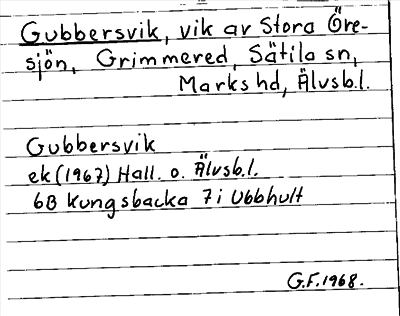 Gubbersvik, vik av Stora Öre-
sjön, Grimmered, Sätila sn,
Marks hd, Älvsb.l.
Gubbersvik
ek (1967) Hall. o. Älvsb.l.
6B Kungsbacka 7i Ubbhult
G.F. 1968.